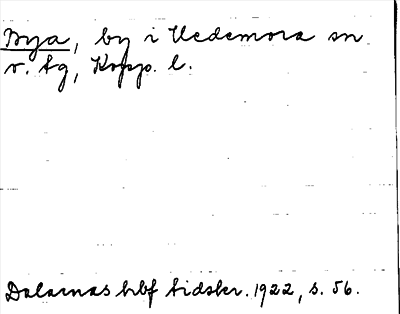 Bya, by i Hedemora sn
v. tg, Kopp. l.
Dalarnas hbf tidskr. 1922, s. 56.